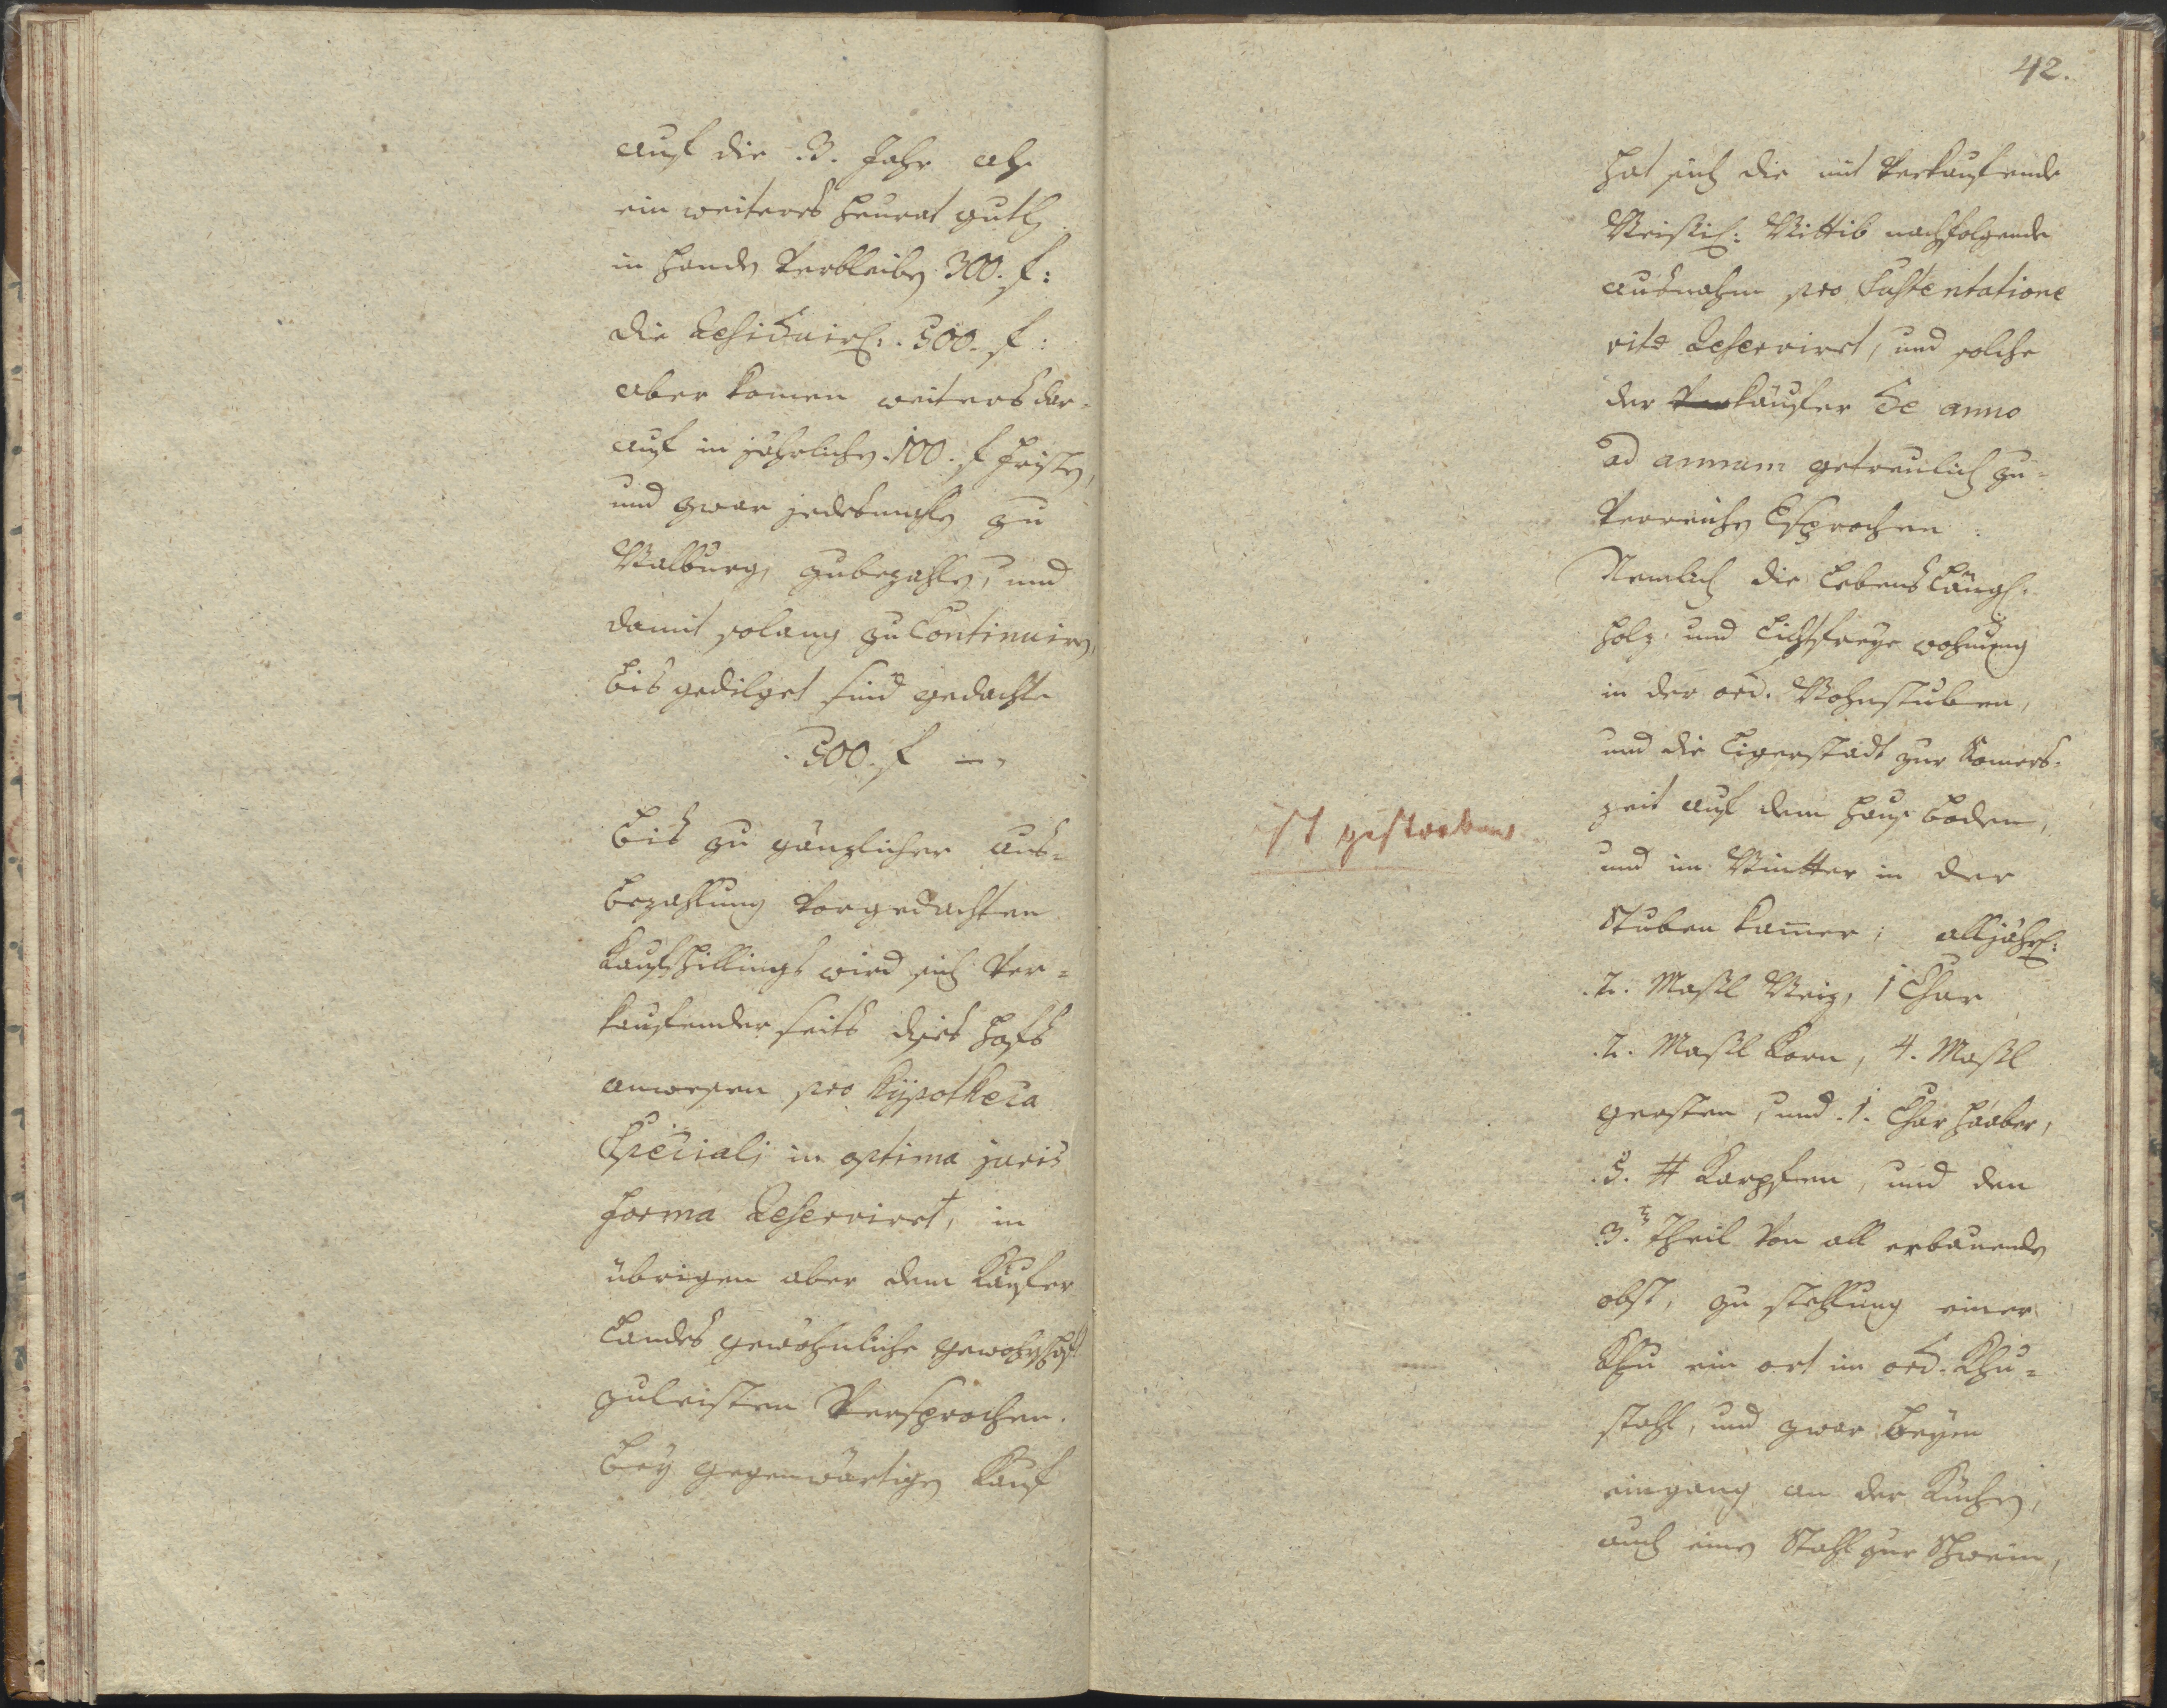 auf die .3. Jahr als
ein weiteres Heurat guth
in Handen Verbleiben 300. f:
die Residuirl: .500. f:
aber komen weiters dar-
auf in jährlichen .100. f Fristen,
und zwar jedesmahlen zu
Walburg, zubezahlen, und
damit solang zu Continuiren,
bis gedilget sind gedachte
.500. f —
Bis zu gänzlicher aus-
bezahlung Vorgedachten
Kaufschillings wird sich Ver-
kaufender seits dises Hofs
anwesen pro Hÿpotheca
Speciali in optima juris
forma Reservirt, in
übrigen aber dem Käufer
Landes gewöhnliche gewehrschaft
zuleisten Versprochen.
Bey gegenwärtigen Kauf
42.
hat sich die mit Verkaufende
Wittib nachfolgende
ausnahm pro Sustentatione
vitæ Reservirt, und solche
der Verkäufer de anno
ad annum getreulich zu-
Verreichen Esprochen
Nemlich die Lebenslängl:
Holz- und Lichtfreye wohnung
in der ord. Wohnstuben,
und die Ligerstadt zur Somers-
zeit auf dem Haus boden,
und im Wintter in der
Stuben kamer; alljährl:
.2. Maßl Weiz, 1 Schar
.2. Maßl Korn, 4. Maßl
gersten, und .1. Schar Haaber,
.5. ℔ Karpfen, und den
3.tn Theil Von all erbauenden
obst, zu stehlung einer
Khu ein ort im ord. Khu-
stahl, und zwar beym
eingang an der Kuchen,
auch einen Stahl zur Schwein,
ist gestorben